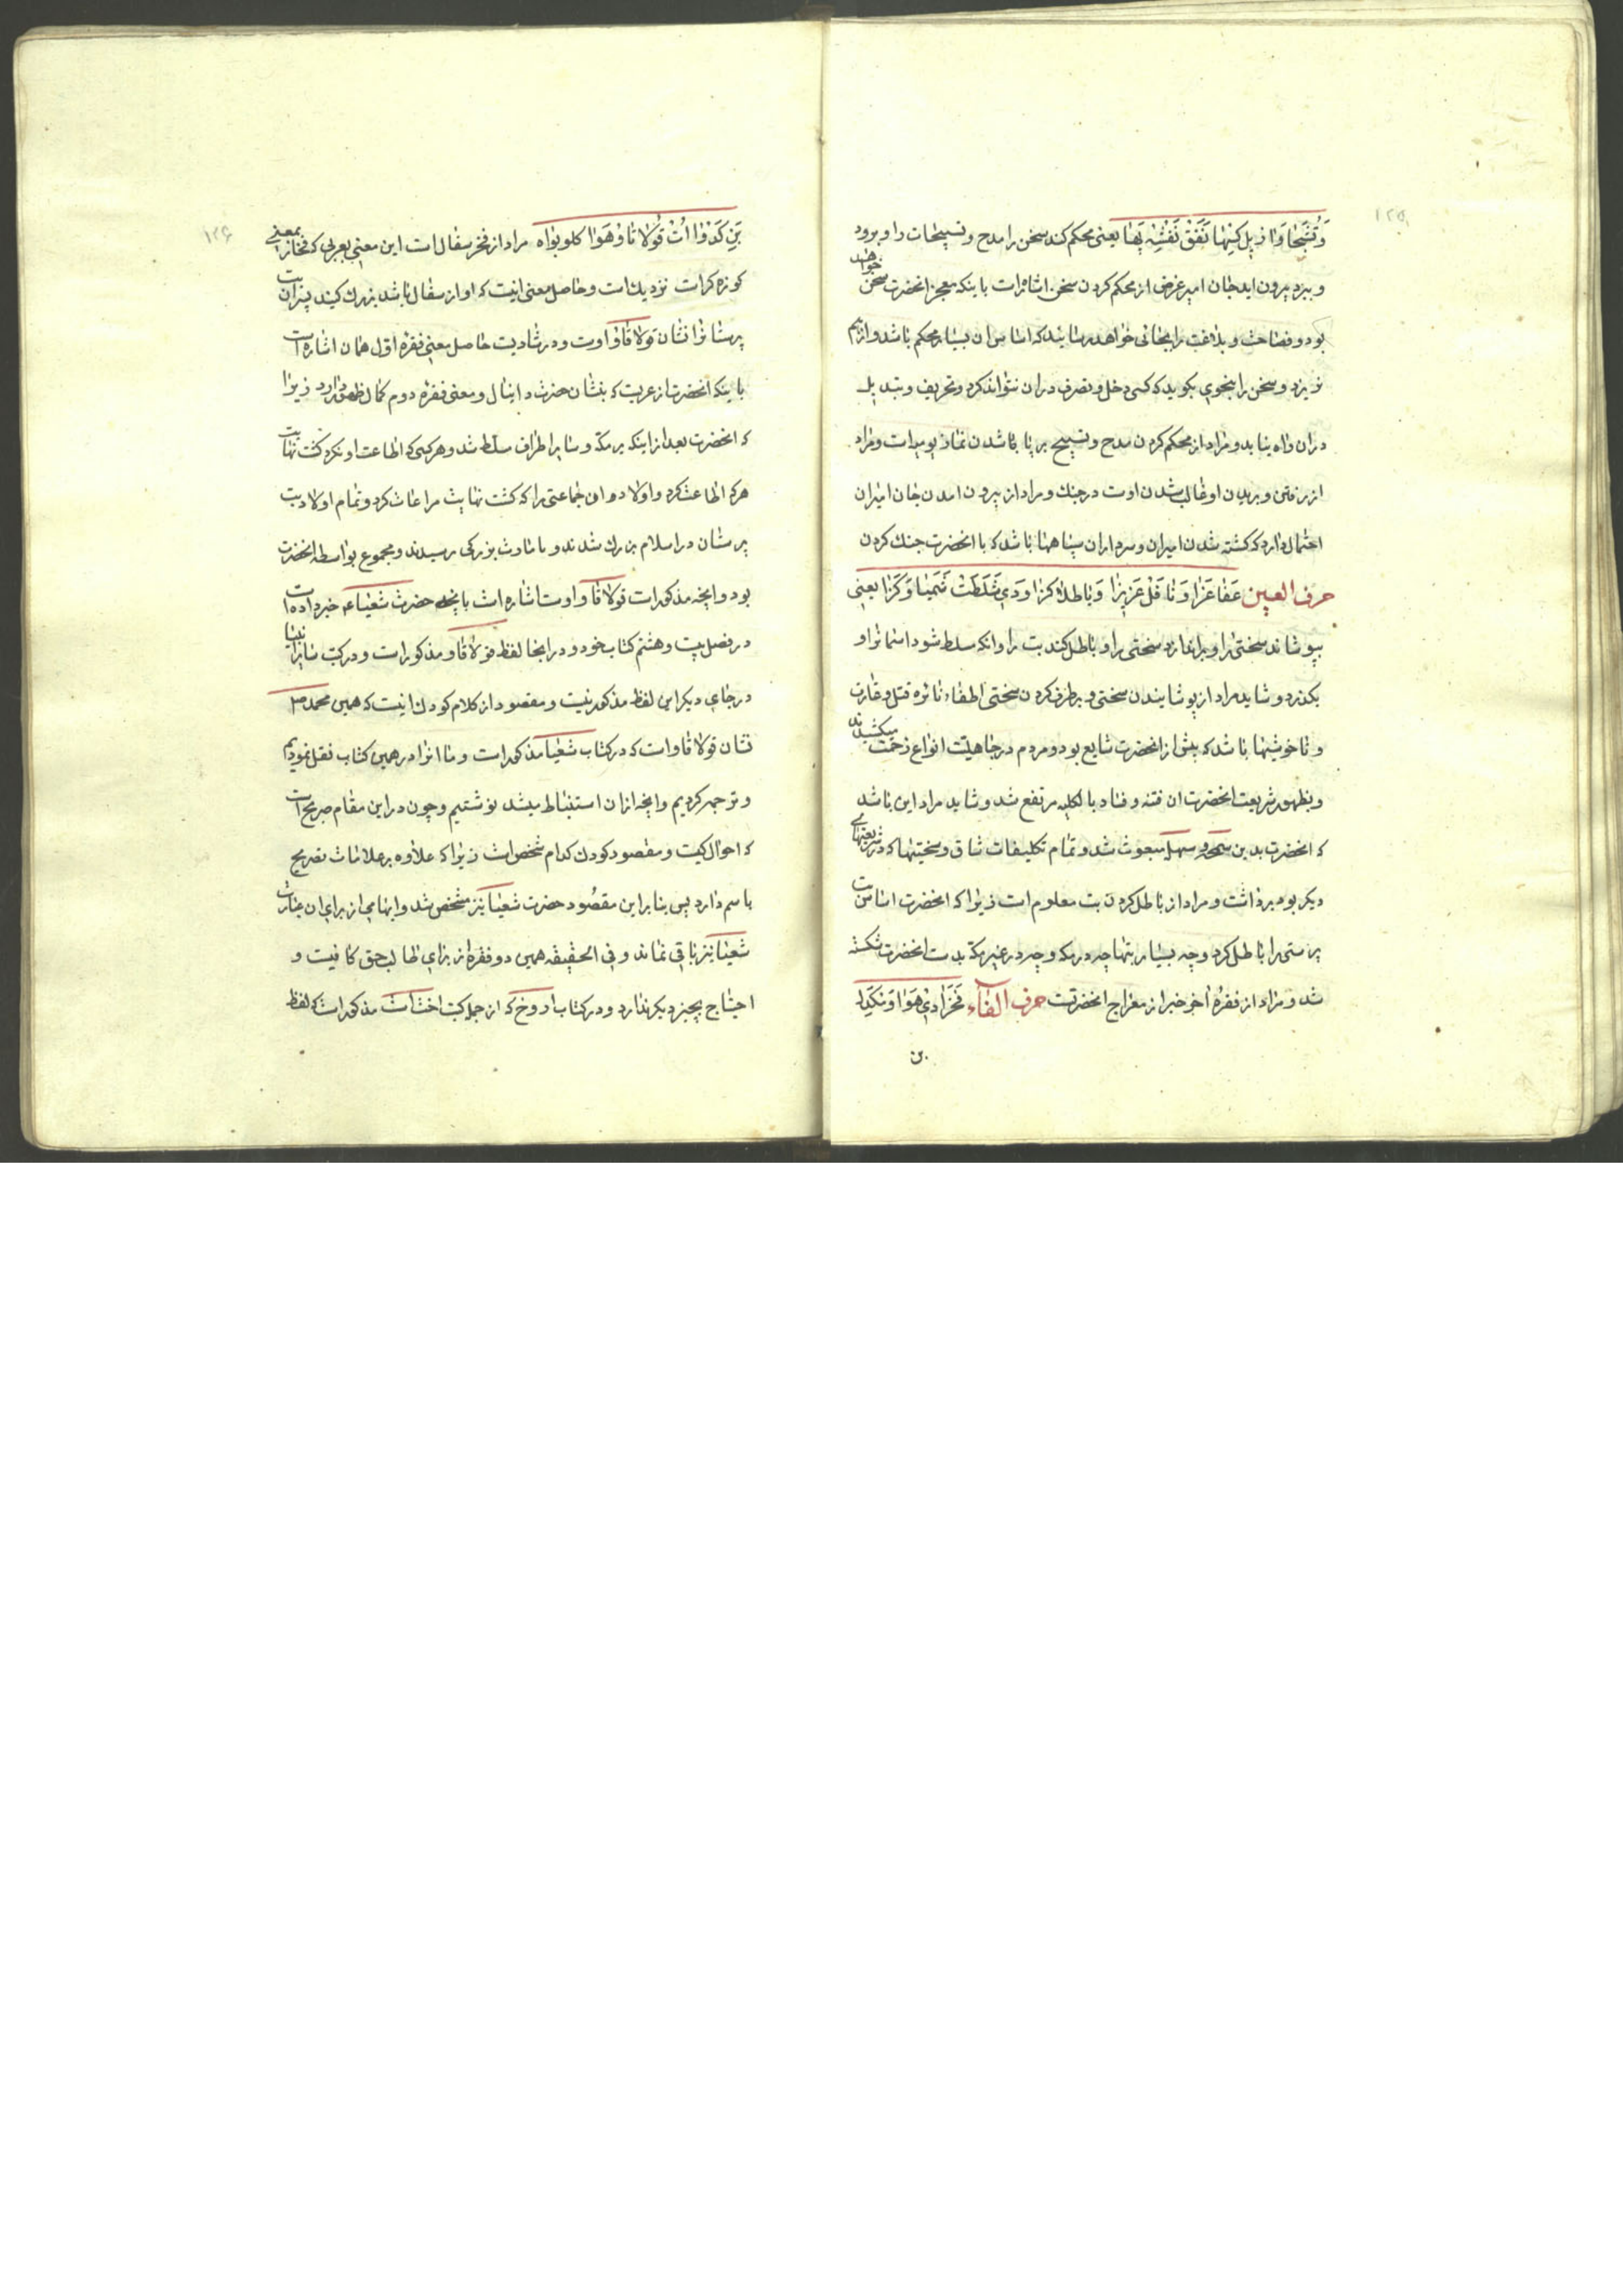 ۱۲۵
وَتُشَبِحَا وَاَزیِل کنِهَا نَفَق نَفشِه بَهَا یعنی محکم کند سخن را مدح و تسبیحات را و برود
و ببرد بیرون اید جان امیر غرض از محکم کردن سخن اشاراتست باینکه معجز انحضرت سخن خواهد
بود و فصاحت و بلاغت را بجائی خواهد رسانید که اساس ان بسیار محکم باشد و از هم
نریزد و سخن را بنحوی بکوید که کسی دخل و تصرف در ان نتواند کرد و تحریف و تبدیل
در ان راه نیابد و مراد از محکم کردن مدح و تسبیح بر پا باشدن نماز یومیه است و مراد
از رفتن و بریدن او غالب شدن اوست در جنک و مراد از بیرون امدن جان امیران
احتمال دارد که کشته شدن امیران و سرداران سپاهها باشد که با انحضرت جنک کردن
حرف العین عَفَاعَزَا وَنَا قَل عَزیزَا وَبَاطلا کرَا وَدِي شَلَطَتْ شَمَیَا وَکَرَا یعنی
بپوشاند سختی را و براندازد سختی را و باطل کند بت را و انکه مسلط شود اسمانرا و
بکذرد و شاید مراد از پوشایندن سختی و برطرف کردن سختی اطفاء نائره قتل و غارت
و ناخوشیها باشد که پیش از انحضرت شایع بود و مردم در جاهلیّت انواع زحمت میکشیدند
و بظهور شریعت انحضرت ان فتنه و فساد بالکلیه مرتفع شد و شاید مراد این باشد
که انحضرت بدین سمحه و سهله مبعوث شد و تمام تکلیفات شاق و سختیها که در شریعتهای
دیکر بود برداشت و مراد از باطل کردن بت معلوم است زیرا که انحضرت اساس بت
پرستی را باطل کرد و چه بسیار بتها چه در مکه و چه در غیر مکه بدست انحضرت شکسته
شد و مراد از فقرهٔ اخر خبر از معراج انحضرتست حرف الفآء فَخَرَا دِي هَوَا وَنکَیلَه
بن
۱۲۶
بَنِ کَدَوْا اُتْ قَوْلاقَا وْهَوَا کلوبوَاه مراد از فخر سفال است این معنی بعربی که فخار بمعنی
کوزه کر است نزدیک است و حاصل معنی انیست که او از سفال باشد بزرک کیند پسران بت
پرستانرا نشان قولاقا و اوست و درشادیت حاصل معنی فقرهٔ اوّل همان اشاره است
باینکه انحضرت از عربست که بنشان حضرت دانیال و معنی فقرهٔ دوم کمال ظهور دارد زیرا
که انحضرت بعد از اینکه بر مکه و سایر اطراف مسلّط شد و هر کسی که اطاعت او نکرد کشت نهایت
هر که اطاعت کرد و اولاد و ان جماعتی را که کشت نهایت مراعات کرد و تمام اولاد بت
پرستان در اسلام بزرک شدند و بامارت بزرکی رسیدند و مجموع بواسطه انحضرت
بود و انچه مذکور است قولاقا و اوست اشاره است بانچه حضرت شعیاء خبر داده است
در فصل بیست و هشتم کتاب خود و در اینجا لفظ قولاقاو مذکور است و در کتب سایر انبیا
در جای دیکر این لفظ مذکور نیست و مقصود از کلام کودک انیست که همین محمد ص
نشان قولاقاو است که در کتاب شعیا مذکور است و ما انرا در همین کتاب نقل نمودیم
و ترجمه کردیم و انچه از ان استنباط میشد نوشتیم و چون در این مقام صریح است
که احوال کیست و مقصود کودک کدام شخص است زیرا که علاوه بر علامات تصریح
باسم دارد پس بنا بر این مقصُود حضرت شعیا نیز مشخص شد و ابهامی از برای ان عبارت
شعیا نیز باقی نماند و فی الحقیقه همین دو فقره از برای طالب حق کافیست و
احتیاج بچیز دیکر ندارد و در کتاب اروخ که از جمله کتب اخت است مذکور است که لفظ